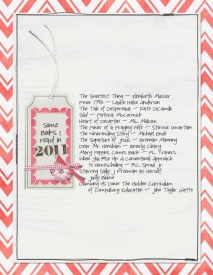 some
books I
read in
2011
The Sweetest Thing — Elizabeth Musser
Fever 1793 — Laurie Halse Anderson
The Tale of Despereaux — Kate DiCamillo
Sold — Patricia McCormick
Heart of Deception — M.L. Malcolm
The Power of a Praying Wife — Stormie Omartian
The Neverending Story — Michael Ende
The Signature of Jesus — Brennan Manning
Dear Mr. Henshaw — Beverly Cleary
Mary Poppins Comes Back — P.L. Travers
When You Rise Up: A Covenantal Approach
to Homeschooling — R.C. Sproul Jr.
Starring Sally J. Freedman as Herself
Judy Blume
Dumbing Us Down: The Hidden Curriculum
of Compulsory Education — John Taylor Gatto